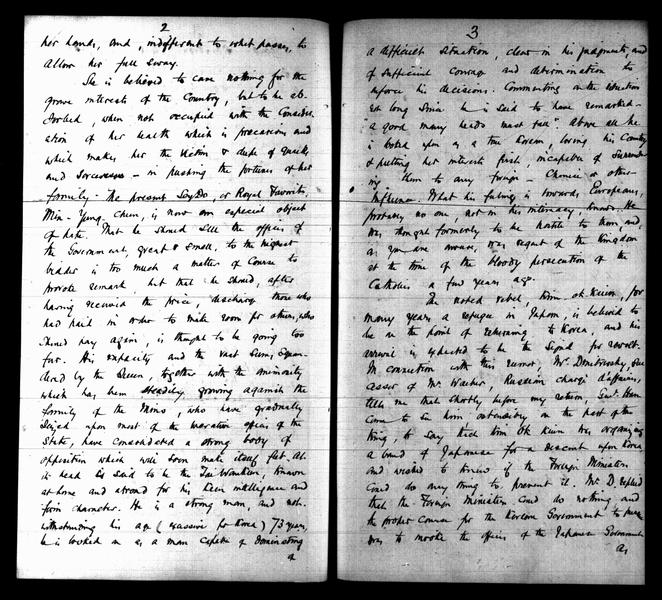 2
her hands, and, indifferent to what passes, to
allow her full sway.
She is believed to care nothing for the
grave interests of the Country, but to be ab-
sorbed, when not occupied with the Consider-
ation of her health which is precarious and
which makes her the victim & dupe of quacks
and Sorceresses - in pushing the fortunes of her
family. The present SoyDo, or Royal Favorite,
Min-Yung-Chun, is now an especial object
of hate. That he should sell the offices of
the Government, great & small, to the highest
bidder is too much a matter of course to
provoke remark, but that he should, after
having received the price, discharge those who
had paid in order to make room for others, who
should pay again, is thought to be going too
far. His rapacity and the vast sums, squan-
dered by the Queen, together with the animosity
which has been steadily growing against the
family of the Mins, who have gradually
seized upon most of the lucrative offices of the
State, have consolidated a strong body of
opposition which will soon make itself felt. At
its head is said to be the Tai Wonkun, known
at home and abroad for his keen intelligence and
firm character. He is a strong man, and not-
withstanding his age (excessive for Korea) 73 years,
he is looked on as a man capable of dominating
of
3
a difficult situation, clear in his judgments, and
of sufficient courage and determination to
enforce his decisions. Commenting on the situation
not long since he is said to have remarked -
"a good many heads must fall". Above all he
is looked upon as a true Korean, loving his Country
& putting her interests first, incapable of surrender-
ing them to any foreign - Chinese or other -
influence. What his feeling is towards Europeans,
probably no one, not in his intimacy, knows. He
was thought formerly to be hostile to them, and,
as you are aware, was regent of the Kingdom
at the time of the bloody persecution of the
Catholics a few years ago.
The noted rebel, Kim Ok Kiun, for
many years a refugee in Japan, is believed to
be on the point of returning to Korea, and his
arrival is expected to be the signal for revolt.
In connection with this rumor, Mr. Dmitrevsky, suc-
cessor of Mr. Waeber, Russian chargé d'affaires,
tells me that shortly before my return, Genl. Han
came to see him ostensibly on the part of the
King, to say that Kim Ok Kiun was organizing
a band of Japanese for a descent upon Korea
and wished to know if the Foreign Ministers
could do any thing to prevent it. Mr. D. replied
that the Foreign Ministers could do nothing and
the proper course for the Korean Government to pursue
was to invoke the offices of the Japanese Government
As